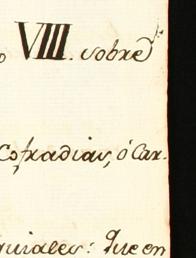 o VIII. sobre
Cofradias, ó Car-
quiales: Que en